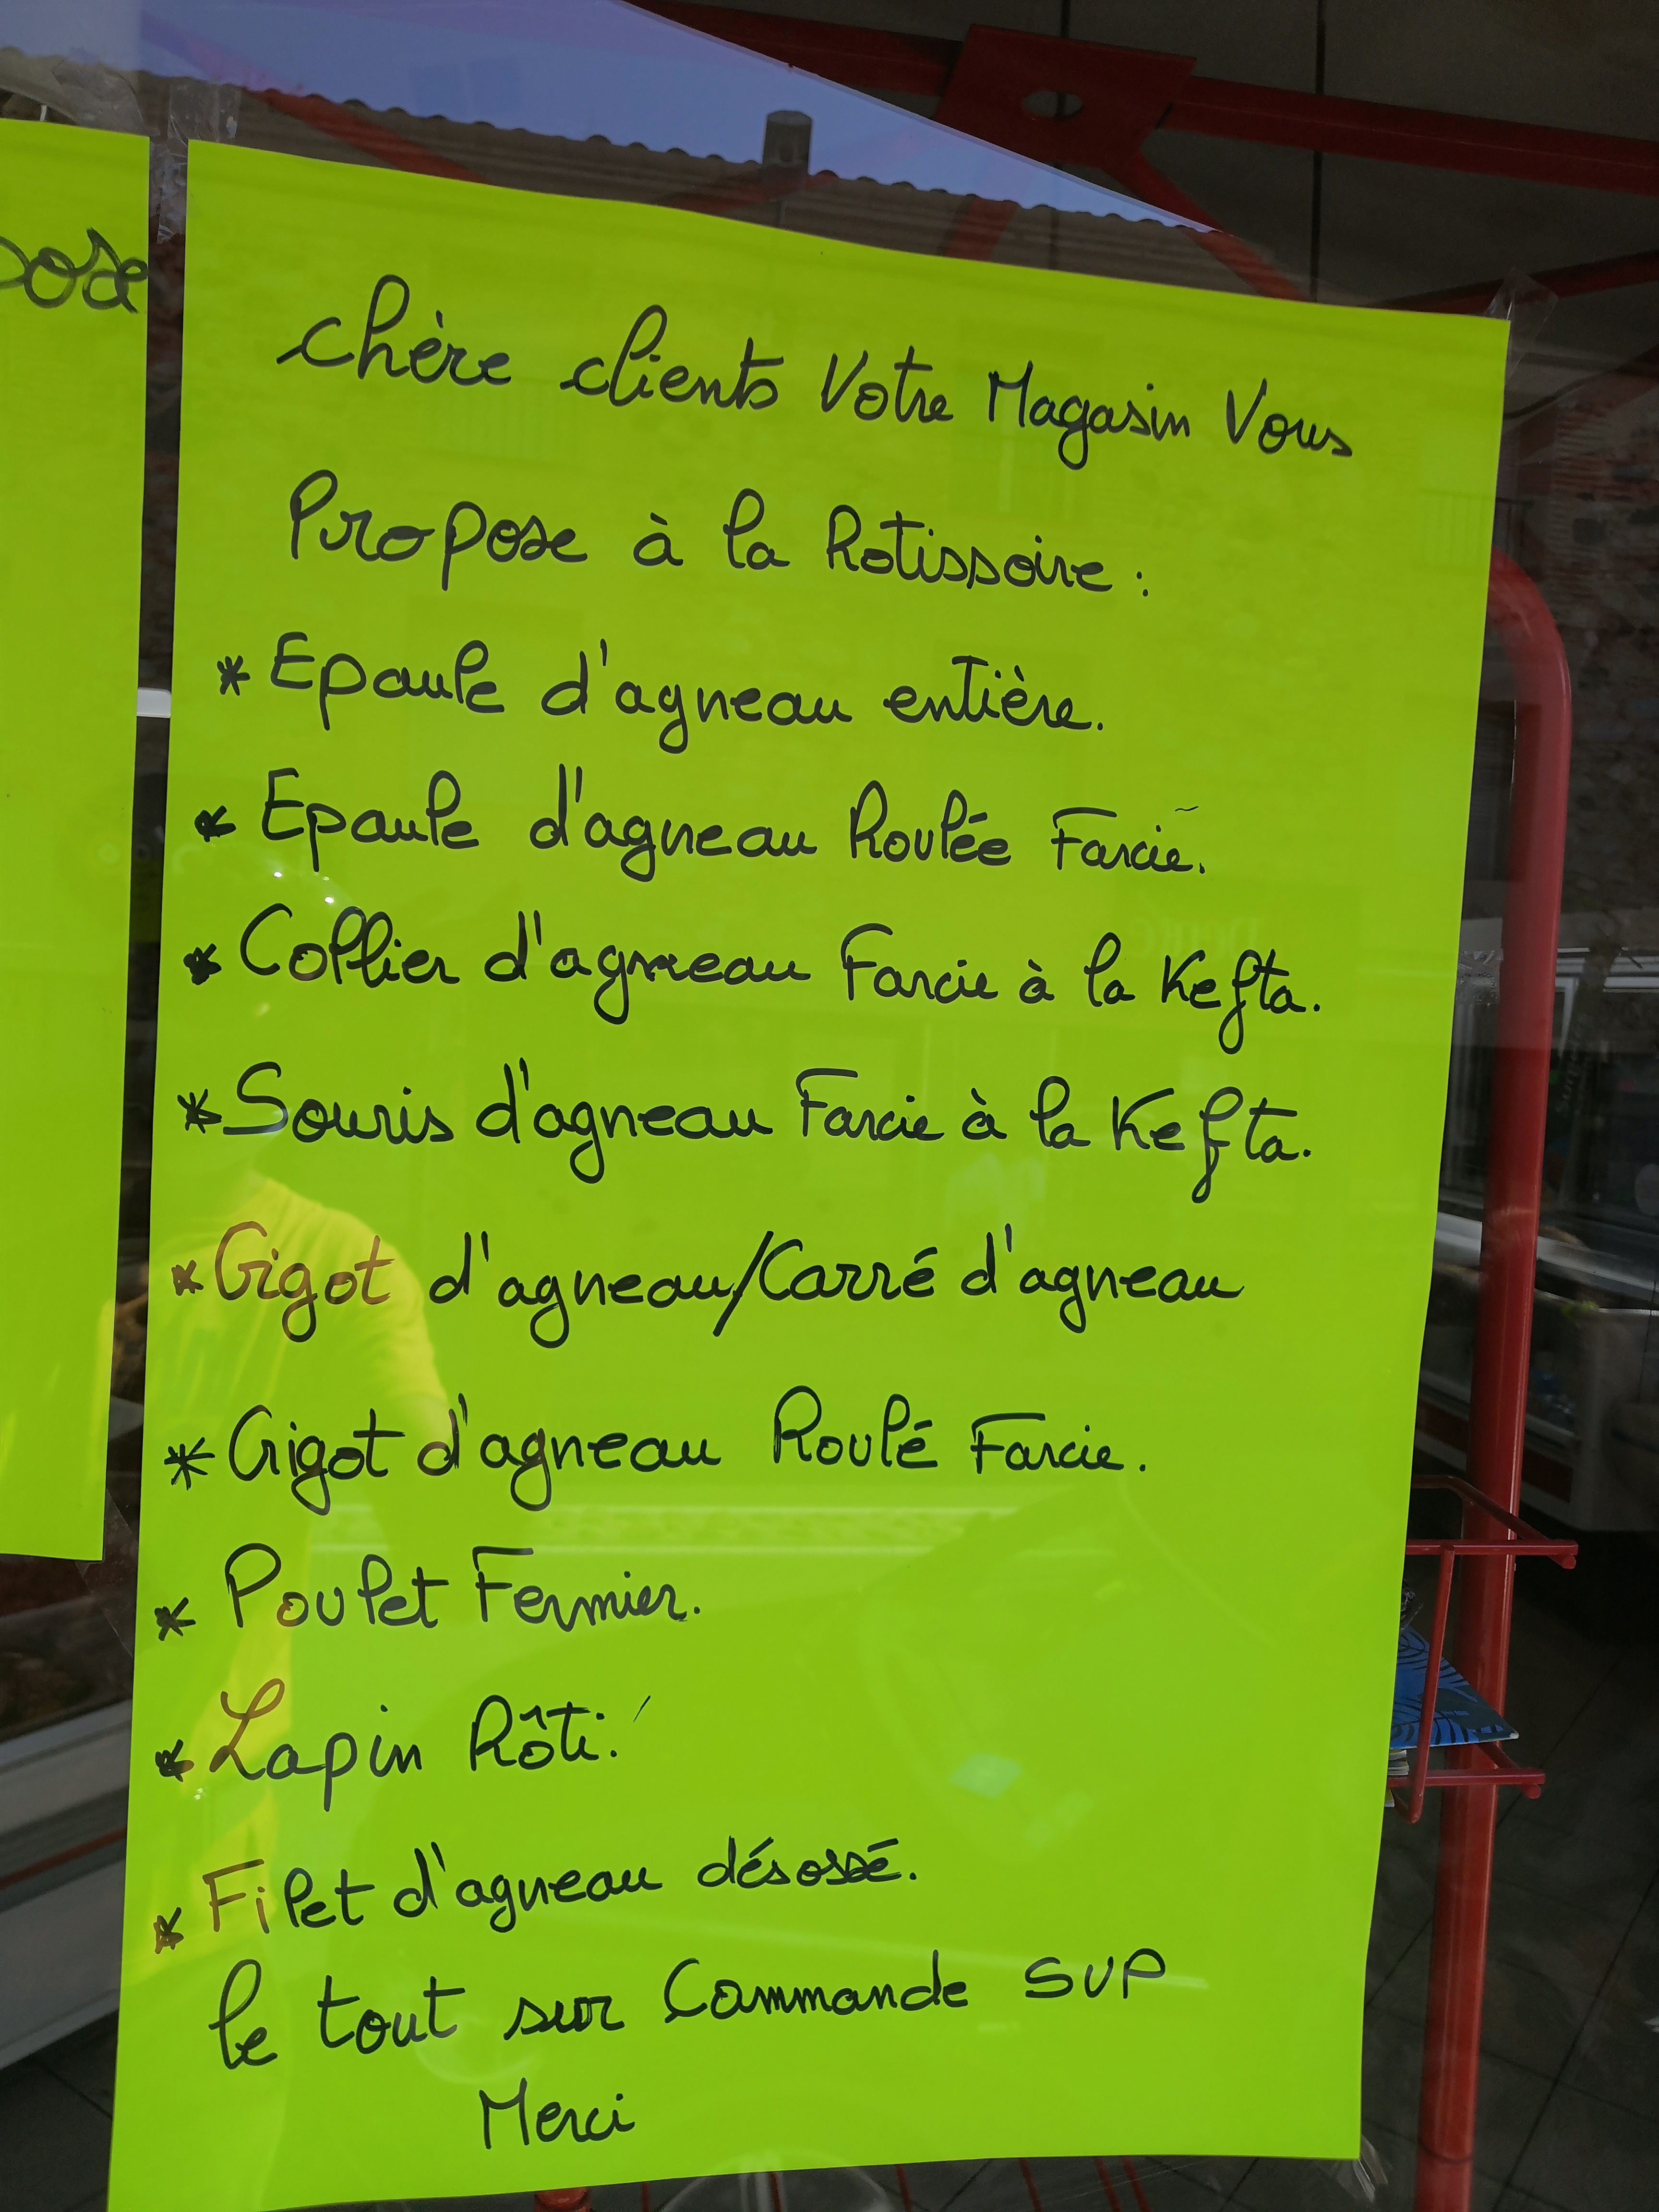 pose
chère clients Votre Magasin Vous
Propose à la Rotissoire :
* Epaule d'agneau entière.
* Epaule d'agneau Roulée Farcie.
* Collier d'agneau Farcie à la Kefta.
* Souris d'agneau Farcie à la Kefta.
* Gigot d'agneau/Carré d'agneau
* Gigot d'agneau Roulé Farcie.
* Poulet Fermier.
* Lapin Rôti.
* Filet d'agneau désossé.
le tout sur Commande SVP
Merci